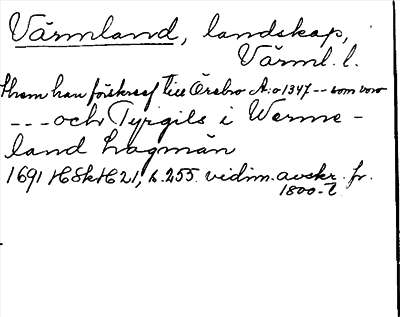 Värmland, landskap,
Värml. l.
Them han förskref till Örebro A:o 1347 -- som voro
--- och Tyrgils i Werme-
land Lagmän
1691 HSH H21, s. 255. vidim. avskr. fr.
1800-t.